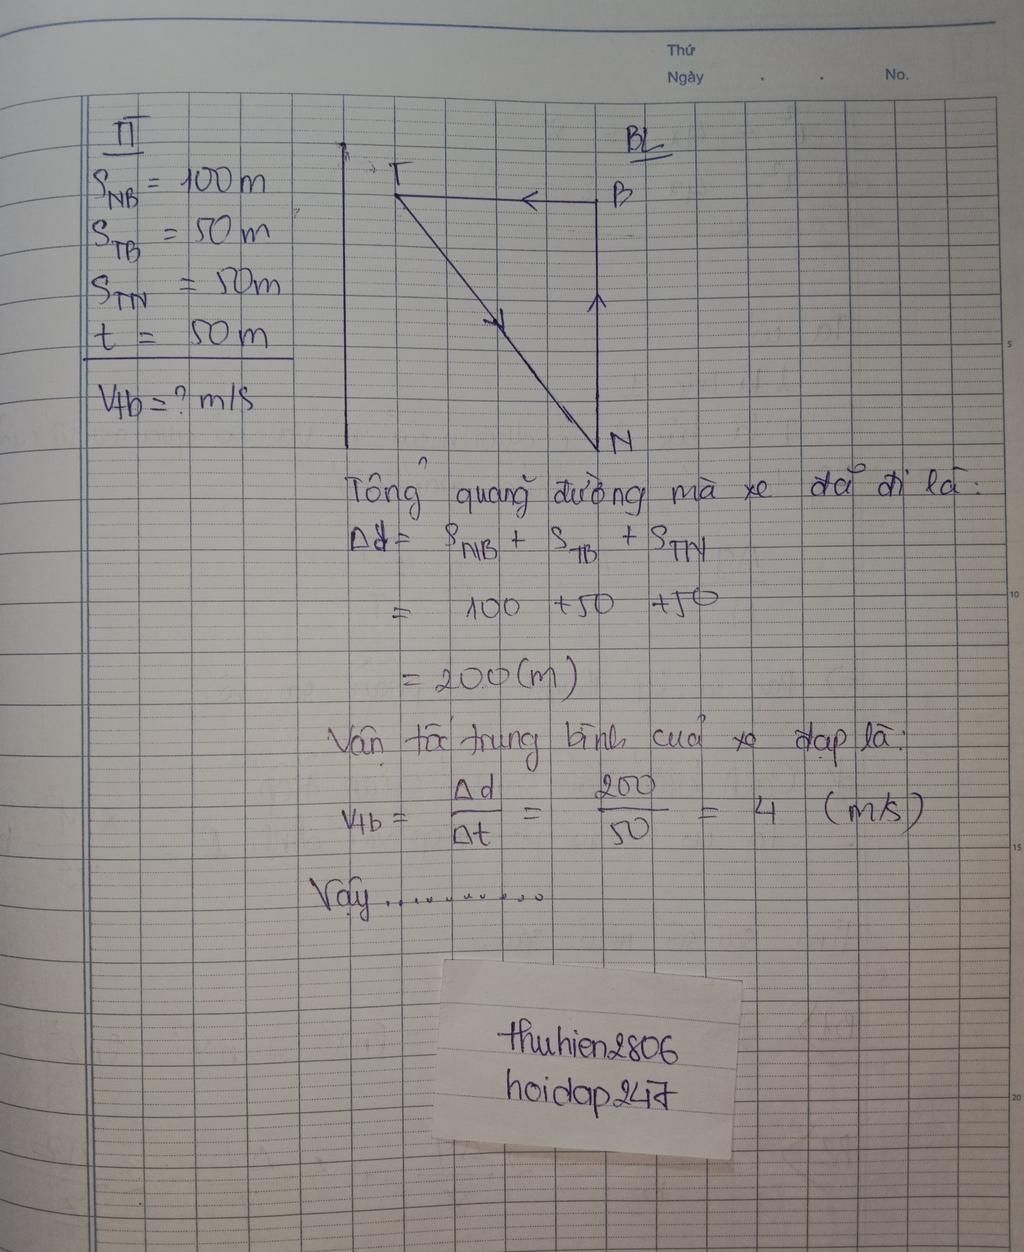 Thứ
Ngày . . No.
TT
S_NB = 100m
S_TB = 50m
S_TN = 50m
t = 50m
Vtb = ? m/s
BL
T
B
N
5
Tổng quãng đường mà xe đã đi là:
Δd = S_NB + S_TB + S_TN
= 100 +50 +50
10
= 200(m)
Vận tốc trung bình của xe đạp là:
Vtb = Δd/Δt = 200/50 = 4 (m/s)
15
Vậy.............
thuhien2806
hoidap247
20